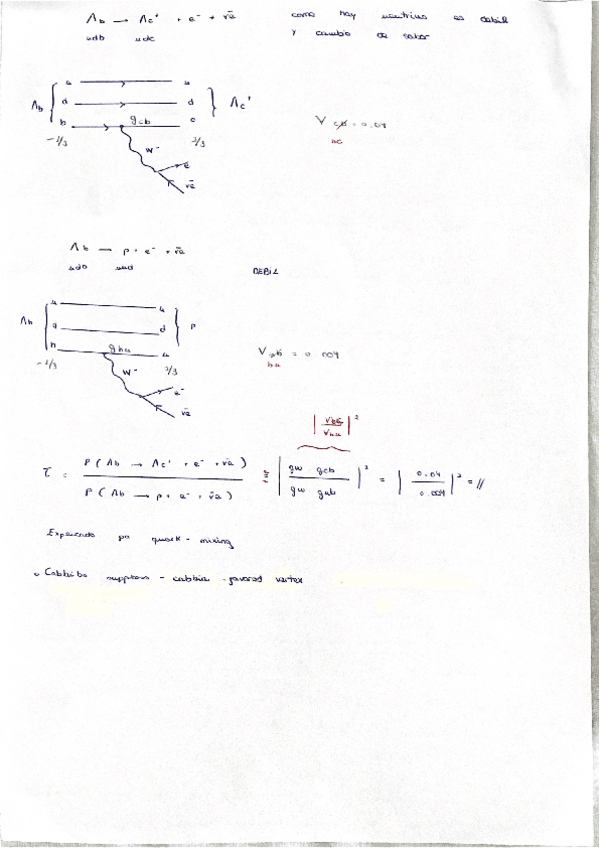 Λb → Λc⁺ + e⁻ + ν̄e como hay neutrino es debil
udb udc y cambio de sabor
u u
Λb d d Λc⁺
b gcb c
-1/3 2/3
W⁻
e⁻
ν̄e
V cb = 0.04
bc
Λb → p + e⁻ + ν̄e
udb uud DEBIL
u u
Λb d d p
b gbu u
-1/3 W⁻ 2/3
e⁻
ν̄e
V ub = 0.004
bu
| Vbc / Vbu |²
τ = P(Λb → Λc⁺ + e⁻ + ν̄e) / P(Λb → p + e⁻ + ν̄e) ≈ | gw gcb / gw gub |² = | 0.04 / 0.004 |² = //
Explicado por quark-mixing
Cabbibo suppress - cabbia - favored vertex